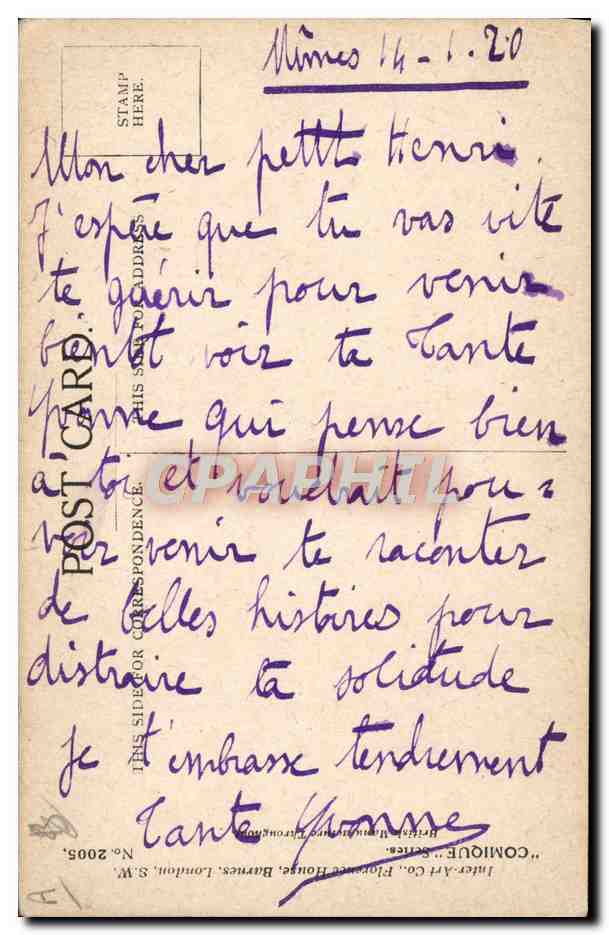 Nîmes 14 - 1. 20
Mon cher petit Henri.
J'espère que tu vas vite
te guérir pour venir
bentôt voir ta Tante
Yvonne qui pense bien
a toi et voudrait pou =
voir venir te raconter
de belles histoires pour
distraire ta solitude
Je t'embrasse tendrement
Tante Yvonne
STAMP
HERE.
POST CARD.
THIS SIDE FOR ADDRESS
THIS SIDE FOR CORRESPONDENCE.
CPAPHIL
Inter-Art Co., Florence House, Barnes, London, S.W.
"COMIQUE" Series.
No. 2005.
British Manufacture Throughout
A